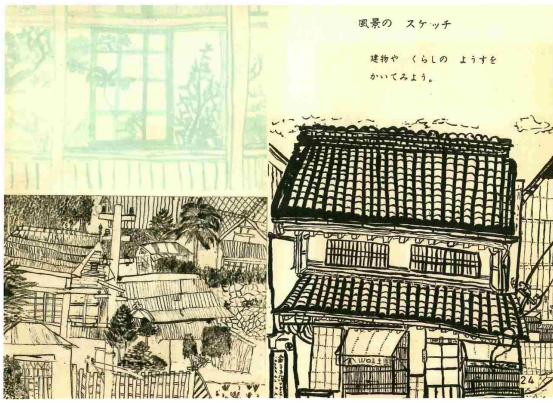 風景の スケッチ
建物や くらしの ようすを
かいてみよう。
24